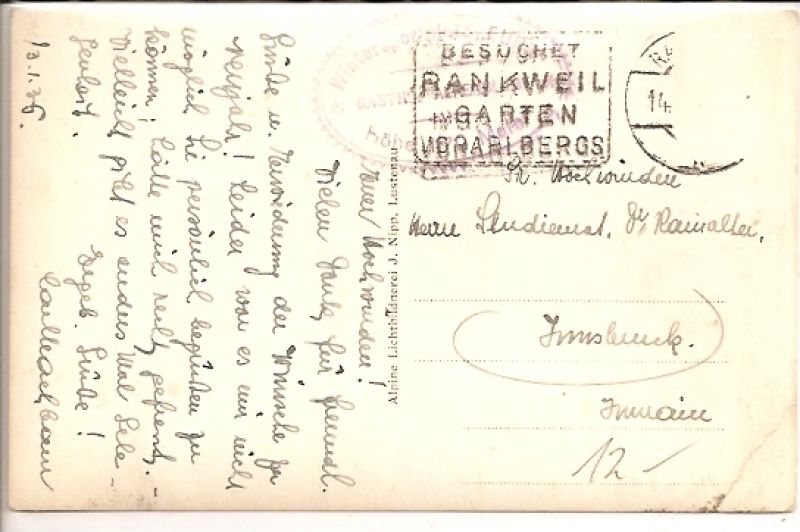 BESUCHET
RANKWEIL
IM GARTEN
VORARLBERGS
14
Sr. Hochwürden
Herrn Studienrat, Dr. Rainalter,
Innsbruck.
Innrain
12 -
Alpine Lichtbildnerei J. Nipp, Lustenau
Euer Hochwürden!
Vielen Dank für freundl.
Grüße u. Erwiderung der Wünsche zu
Neujahr! Leider war es mir nicht
möglich Sie persönlich begrüßen zu
können; hätte mich recht gefreut. -
Vielleicht gibt es anders Mal Gele-
genheit.
Ergeb. Grüße!
13.1.36.